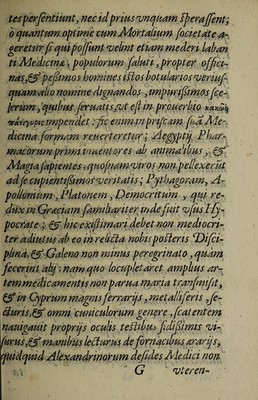 tes persentiunt, nec id prius vnquam sperassent;
ò quantum optimè cum Mortalium societate a-
geretur si qui possunt velint etiam mederi laban
ti Medicinæ, populorum saluti, propter offici-
nas, & pessimos homines istos botularios verius-
quam alio nomine dignandos, impurissimos sce-
lerum, quibus seruatis, vt est in prouerbio κακῶν
impendet: sic enim in priscam suã Me-
dicina formam reuerteretur; Aegyptij Phar-
macorum primi inuentores ab animalibus, &
Magia sapientes, quosnam viros non pellexerūt
ad se cupientissimos veritatis; Pythagoram, A-
pollonium, Platonem, Democritum, qui re-
dux in Græciam familiariter inde fuit vsus Hy-
pocrate; & hic existimari debet non mediocri-
ter adiutus ab eo in relicta nobis posteris Disci-
plina, & Galeno non minus peregrinato, quàm
fecerint alij: nam quo locupletaret amplius ar-
tem medicamentis non parua maria transmisit,
& in Cyprum magnis ferrarijs, metalliferis, se-
cturis, & omni cuniculorum genere, scatentem
nauigauit proprijs oculis testibus fidissimis vi-
surus, & manibus lecturus de fornacibus ærarijs,
quidquid Alexandrinorum desides Medici non
G vteren-